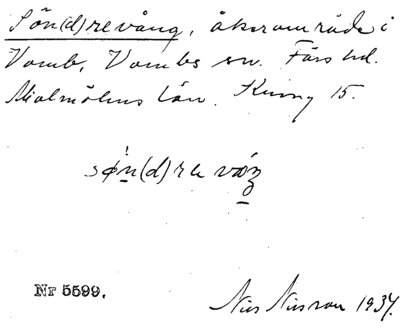 Sön(d)revång, åkerområde i
Vomb, Vombs sn. Färs hd.
Malmöhus län. Kung 15.
sø̀n(d)re vǽŋ
Nr 5599.
Nils Nilsson 1937.